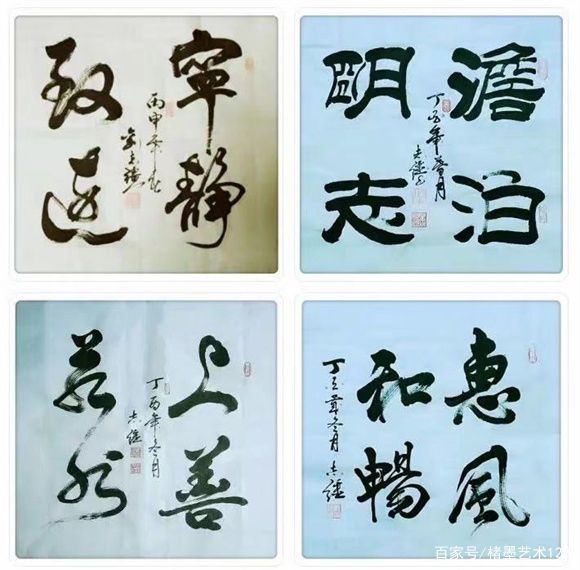 寧靜
致遠
丙申年春
澹泊
明志
丁酉年春月
上善
若水
丁酉年冬月
惠風
和暢
丁酉年冬月
百家号/楮墨艺术12